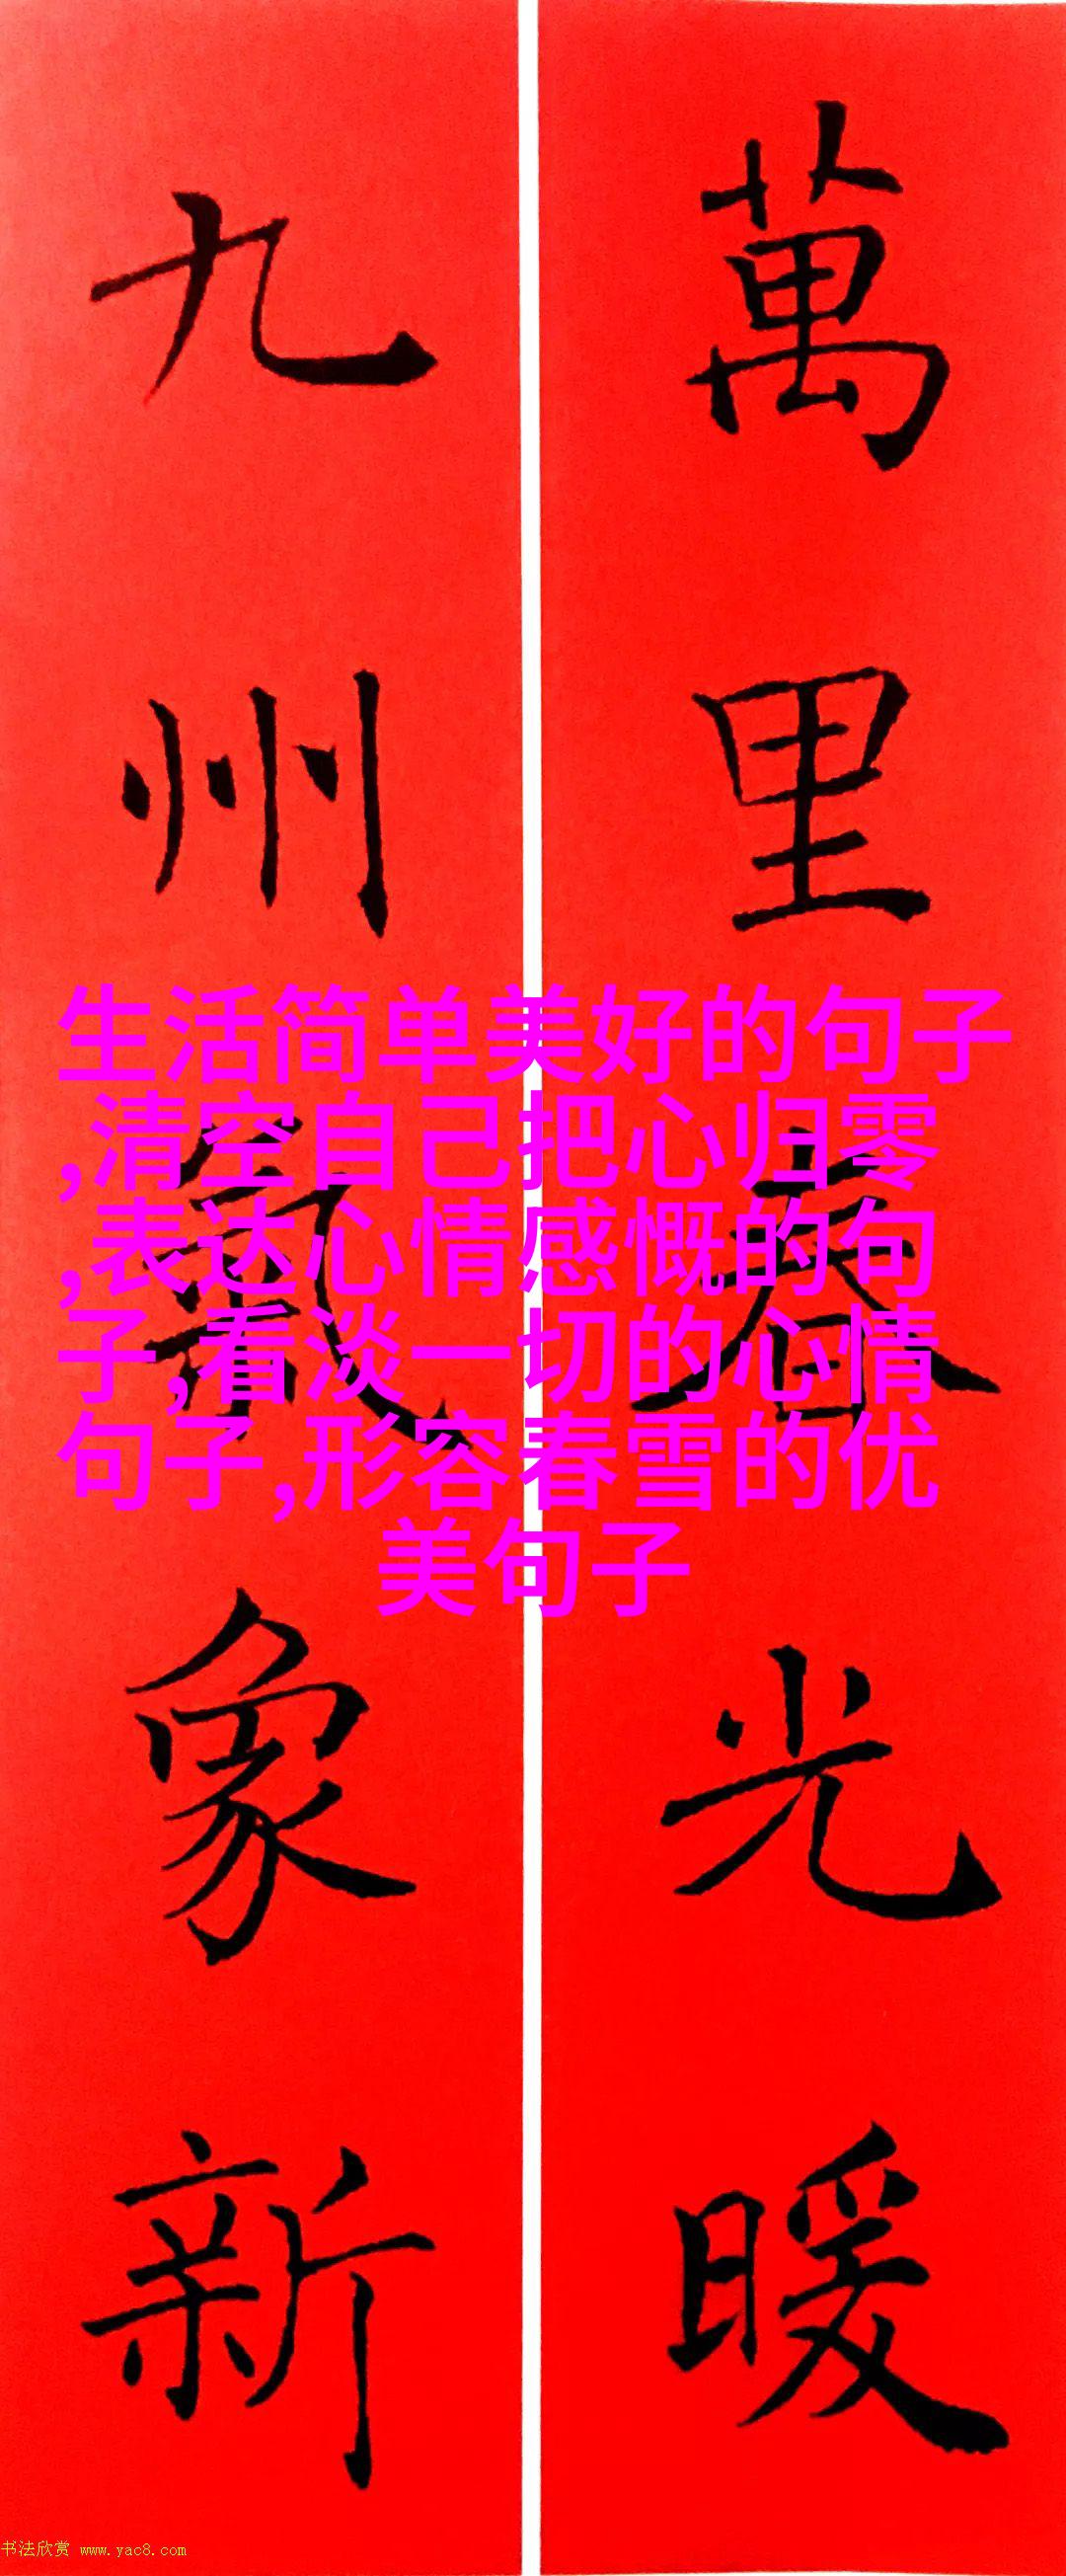 萬里春光暖
九州氣象新
生活简单美好的句子
,清空自己把心归零
,表达心情感慨的句
子,看淡一切的心情
句子,形容春雪的优
美句子
书法欣赏 www.yac8.com